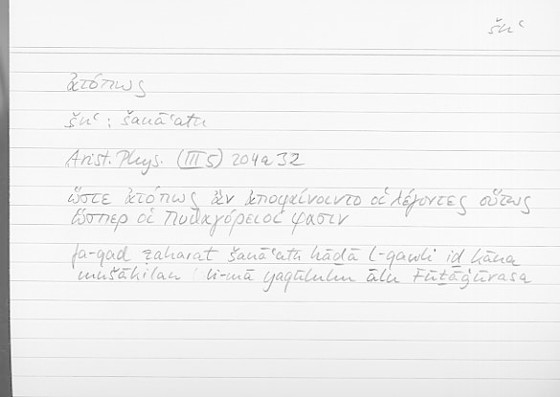 šnʿ
ἀτόπως
šnʿ : šanāʿatu
Arist. Phys. (III 5) 204a32
ὥστε ἀτόπως ἂν ἀποφαίνοιντο οἱ λέγοντες οὕτως
ὥσπερ οἱ Πυθαγόρειοί φασιν
fa-qad ẓaharat šanāʿatu hāḏā l-qawli iḏ kāna
mušākilan li-mā yaqūluhu ālu Fūṯāġūrasa